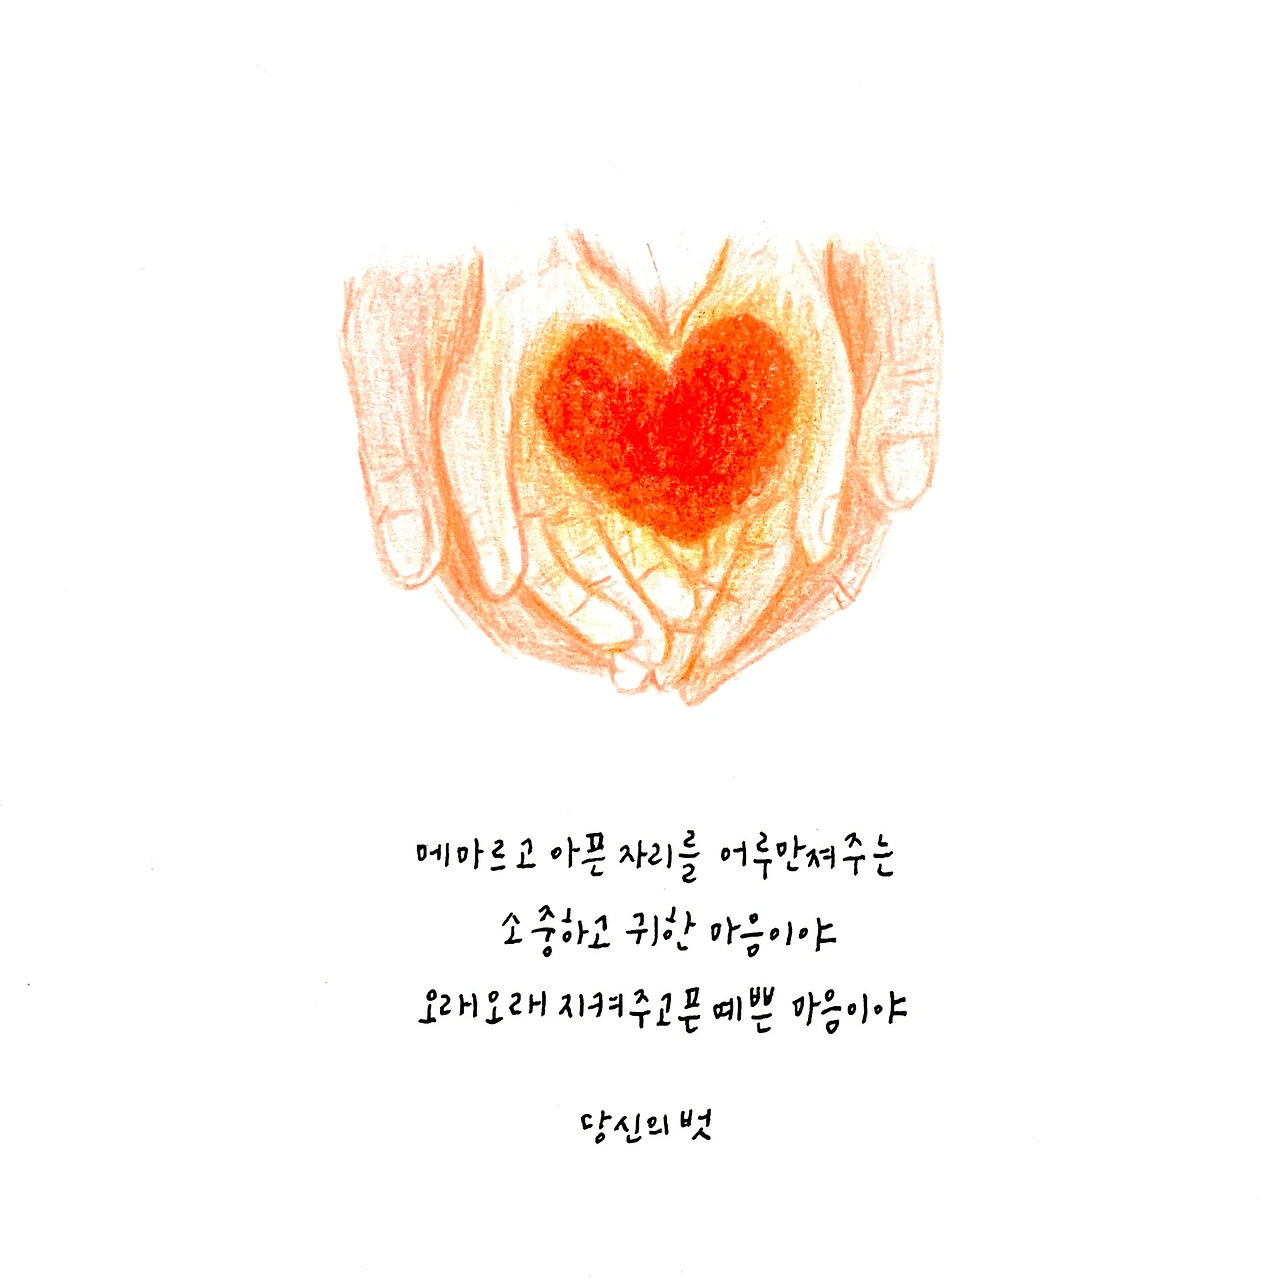 메마르고 아픈 자리를 어루만져주는
소중하고 귀한 마음이야
오래오래 지켜주고픈 예쁜 마음이야
당신의 벗